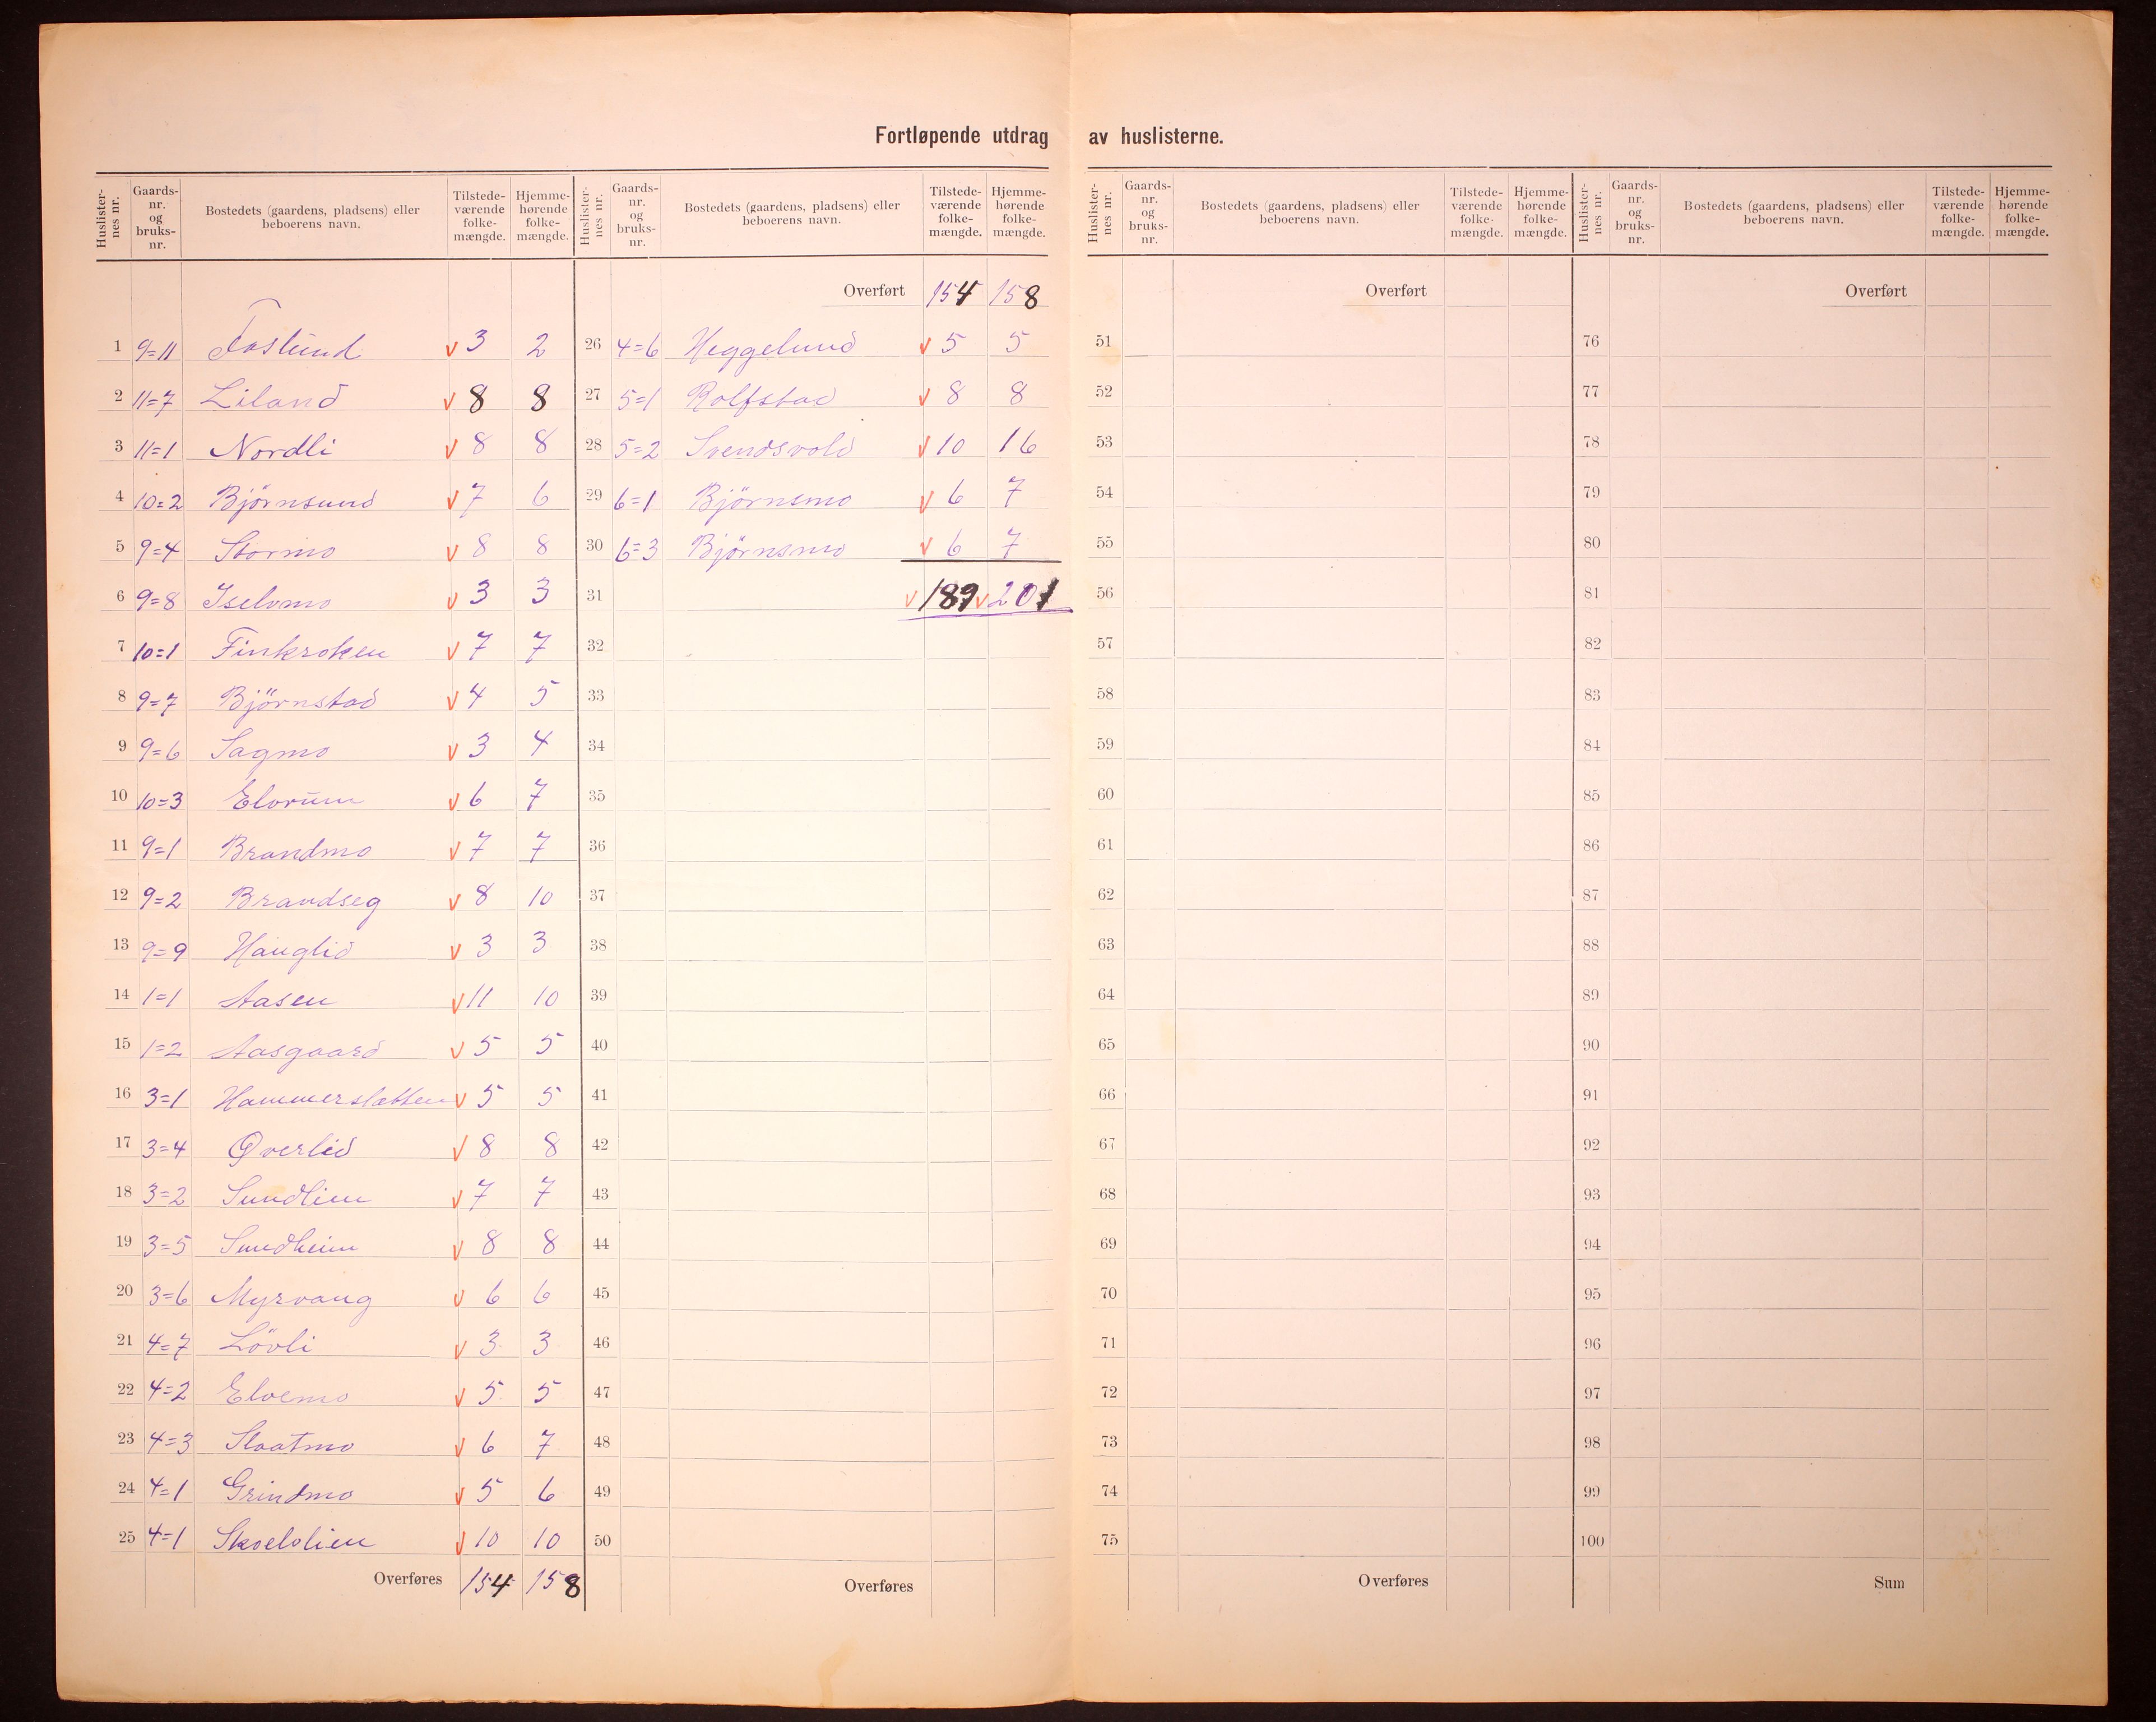 Fortløpende utdrag av huslisterne.
Huslisternes nr. | Gaardsnr. og bruksnr. | Bostedets (gaardens, pladsens) eller beboerens navn. | Tilstedeværende folkemængde. | Hjemmehørende folkemængde.
1 9=11 Foslund v 3 2
2 11=7 Liland v 8 8
3 11=1 Nordli v 8 8
4 10=2 Björnsund v 7 6
5 9=4 Stormo v 8 8
6 9=8 Iselvmo v 3 3
7 10=1 Finkroken v 7 7
8 9=7 Björnstad v 4 5
9 9=6 Sagmo v 3 4
10 10=3 Elvrum v 6 7
11 9=1 Brandmo v 7 7
12 9=2 Brandseg v 8 10
13 9=9 Hauglid v 3 3
14 1=1 Aasen v 11 10
15 1=2 Aasgaard v 5 5
16 3=1 Hammersletten v 5 5
17 3=4 Øverlid v 8 8
18 3=2 Sundlien v 7 7
19 3=5 Sundheim v 8 8
20 3=6 Myrvang v 6 6
21 4=7 Lövli v 3 3
22 4=2 Elvemo v 5 5
23 4=3 Slaatmo v 6 7
24 4=1 Grindmo v 5 6
25 4=1 Skoelvlien v 10 10
Overføres 154 158
Huslisternes nr. | Gaardsnr. og bruksnr. | Bostedets (gaardens, pladsens) eller beboerens navn. | Tilstedeværende folkemængde. | Hjemmehørende folkemængde.
Overført 154 158
26 4=6 Heggelund v 5 5
27 5=1 Rolfstad v 8 8
28 5=2 Svendsvold v 10 16
29 6=1 Björnsmo v 6 7
30 6=3 Björnsmo v 6 7
31 v 189 v 201
32
33
34
35
36
37
38
39
40
41
42
43
44
45
46
47
48
49
50
Overføres
Huslisternes nr. | Gaardsnr. og bruksnr. | Bostedets (gaardens, pladsens) eller beboerens navn. | Tilstedeværende folkemængde. | Hjemmehørende folkemængde.
Overført
51
52
53
54
55
56
57
58
59
60
61
62
63
64
65
66
67
68
69
70
71
72
73
74
75
Overføres
Huslisternes nr. | Gaardsnr. og bruksnr. | Bostedets (gaardens, pladsens) eller beboerens navn. | Tilstedeværende folkemængde. | Hjemmehørende folkemængde.
Overført
76
77
78
79
80
81
82
83
84
85
86
87
88
89
90
91
92
93
94
95
96
97
98
99
100
Sum